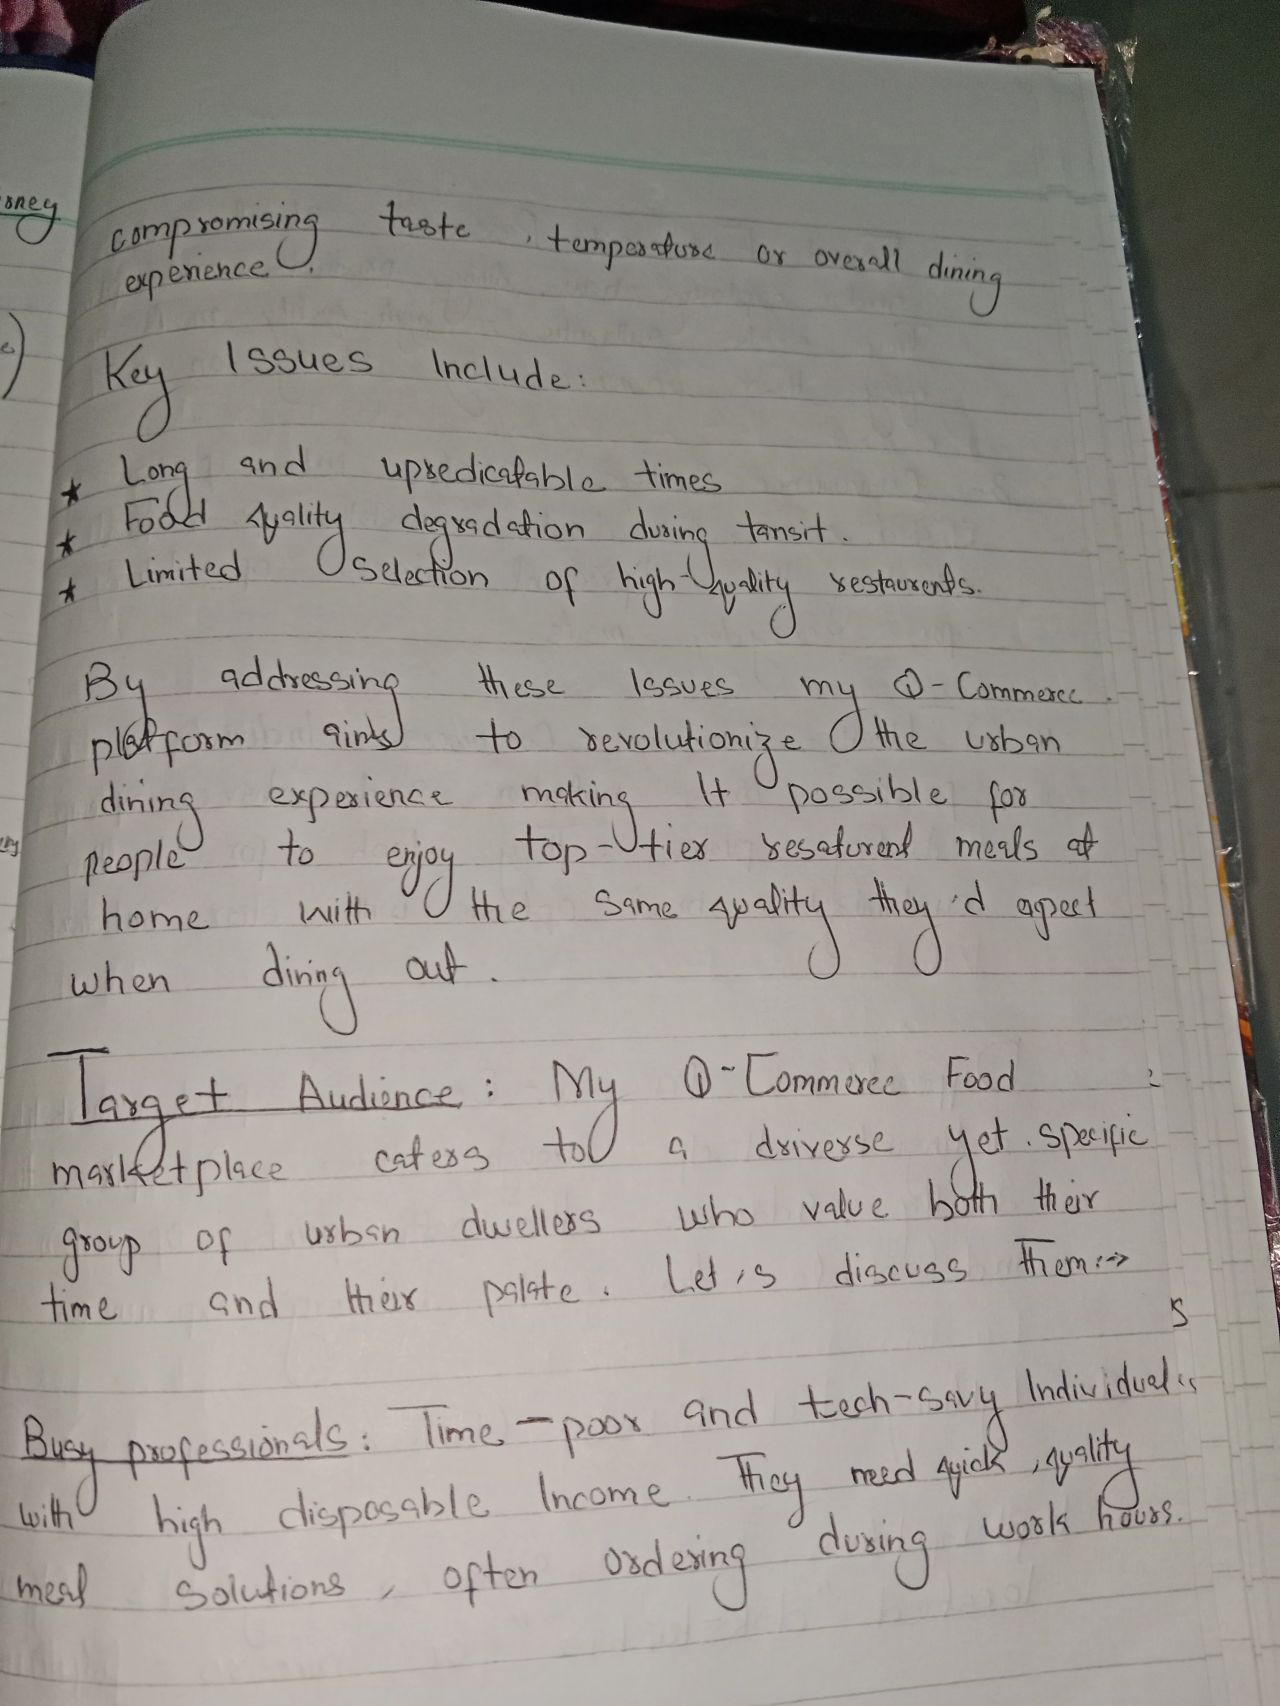 compromising taste, temperature or overall dining
experience.
Key Issues Include:
★ Long and upredicatable times
★ Food quality degradation during tansit.
★ Limited Selection of high-quality restaurents.
By addressing these Issues my Q-Commerce
platform aims to revolutionize the urban
dining experience making It possible for
people to enjoy top-tier resaturent meals at
home with the same quality they'd expect
when dining out.
Target Audience: My Q-Commerce Food
marketplace caters to a driverse yet specific
group of urban dwellers who value both their
time and their palate. Let's discuss Them:→
Busy professionals: Time-poor and tech-savy Individuals
with high disposable Income. They need quick, quality
meal solutions, often ordering during work hours.